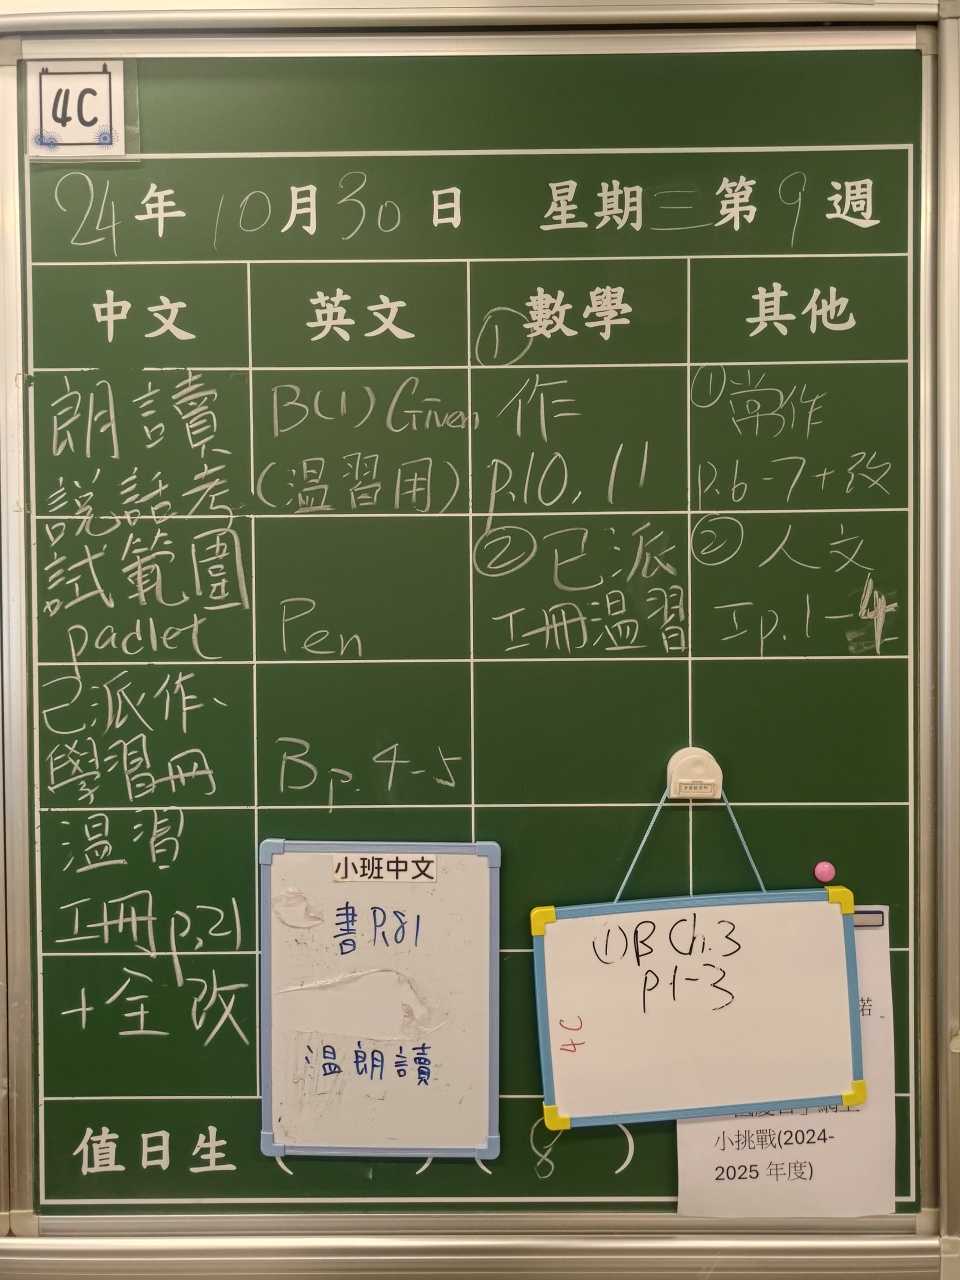 4C
24年10月30日 星期三第9週
中文 英文 數學 其他
朗讀
說話考
試範圍
padlet
已派作、
學習冊
溫習
工冊 p.21
+全改
B(1) Given
(溫習用)
Pen
B p. 4-5
①
作
p.10, 11
②已派
工冊溫習
①常作
p.6-7+改
②人文
工p.1-4
小班中文
書P.81
溫朗讀
(1) B Ch.3
p1-3
4C
小挑戰(2024-
2025 年度)
值日生 ( ) ( 8 )